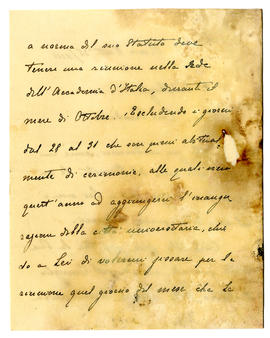 a norma del suo Statuto deve
tenere una riunione nella sede
dell'Accademia d'Italia, durante il
mese di Ottobre. Escludendo i giorni
dal 28 al 31 che son presi abitual
mente di cerimonie, alle quali in
quest'anno ad aggiungersi l'inaugu
razione della città universitaria, chie
do a Lei di volermi fissare per la
riunione quel giorno del mese che Le